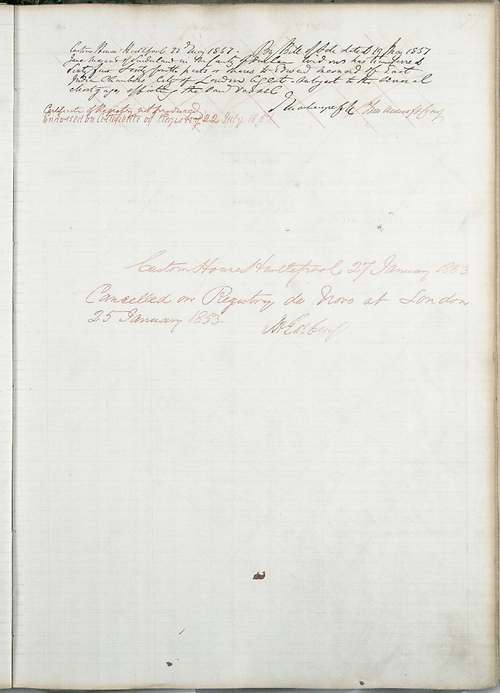 Custom House Hartlepool 23 May 1851. By Bill of Sale dated 19 May 1851
of Sunderland in the County of Durham has transferred
Sixty four Sixty fourth parts or shares to Edward of East
India Chambers City of London subject to the several
Mortgages affecting the said Vessel
Certificate of Registry not produced
Endorsed on Certificate of Registry 22 July 1851
Custom House Hartlepool 27 January 1853
Cancelled on Registry de Novo at London
25 January 1853